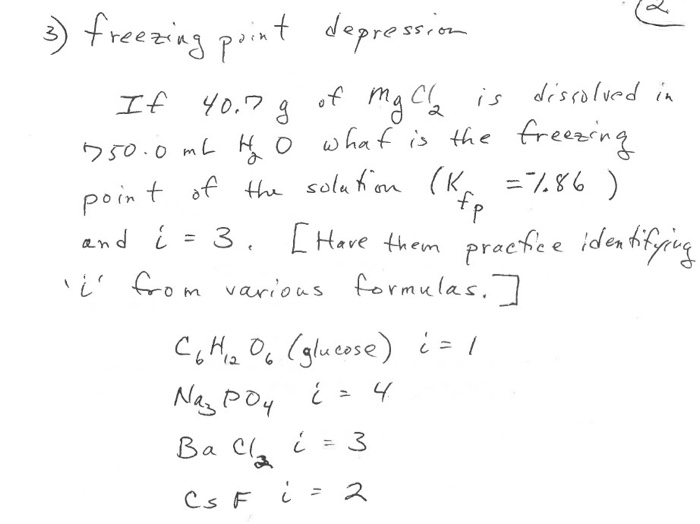 2
3) freezing point depression
If 40.7 g of MgCl₂ is dissolved in
750.0 mL H₂O what is the freezing
point of the solution (K_fp = -1.86)
and i = 3. [Have them practice identifying
'i' from various formulas.]
C₆H₁₂O₆ (glucose) i = 1
Na₃PO₄ i = 4
BaCl₂ i = 3
CsF i = 2